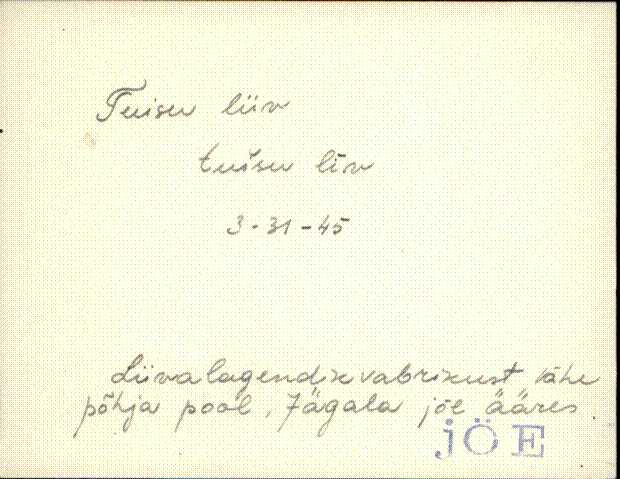 Tuisu liiv
tuĭsu līv
3-31-45
Liivalagendik vabrikust vähe
põhja pool, Jägala jõe ääres.
JÕE